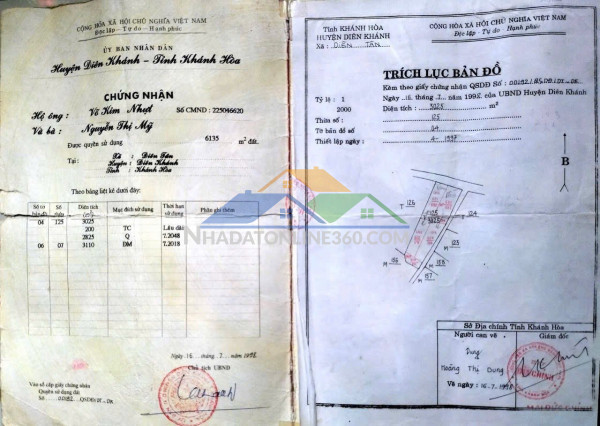 CỘNG HÒA XÃ HỘI CHỦ NGHĨA VIỆT NAM
Độc lập - Tự do - Hạnh phúc
ỦY BAN NHÂN DÂN
Huyện Diên Khánh - Tỉnh Khánh Hòa
CHỨNG NHẬN
Hộ ông: Võ Kim Nhựt Số CMND : 225046620
Và bà : Nguyễn Thị Mỹ
Được quyền sử dụng 6135 m² đất.
Tại : Xã : Diên Tân
Huyện : Diên Khánh
Tỉnh : Khánh Hòa
Theo bảng liệt kê dưới đây:
Số tờ bản đồ Số thửa Diện tích (m²) Mục đích sử dụng Thời hạn sử dụng Phần ghi thêm
04 125 3025
200 TC Lâu dài
2825 Q T.2048
06 07 3110 ĐM T.2018
NHADATONLINE360.COM
Ngày 16 tháng 7 năm 1998
Chủ tịch UBND
Vào sổ cấp giấy chứng nhận
Quyền sử dụng đất
Số 00192 QSDĐ/ĐT-DK
Tỉnh KHÁNH HÒA
HUYỆN DIÊN KHÁNH
Xã: DIÊN TÂN
CỘNG HÒA XÃ HỘI CHỦ NGHĨA VIỆT NAM
Độc lập - Tự do - Hạnh phúc
TRÍCH LỤC BẢN ĐỒ
Kèm theo giấy chứng nhận QSDĐ Số : 00192
Ngày 16 tháng 7 năm 1998 của UBND Huyện Diên Khánh
Tỷ lệ : 1
2000
Diện tích : 3025 m²
Thửa số : 125
Tờ bản đồ số : 04
Thiết lập ngày : 4-1997
B
T 126
T 124
125
3025
M 123
M 158
M 157
M 156
Sở Địa chính Tỉnh Khánh Hòa
Người can vẽ Giám đốc
Dung
Hoàng Thị Dung
Vẽ ngày : 16.7.1998